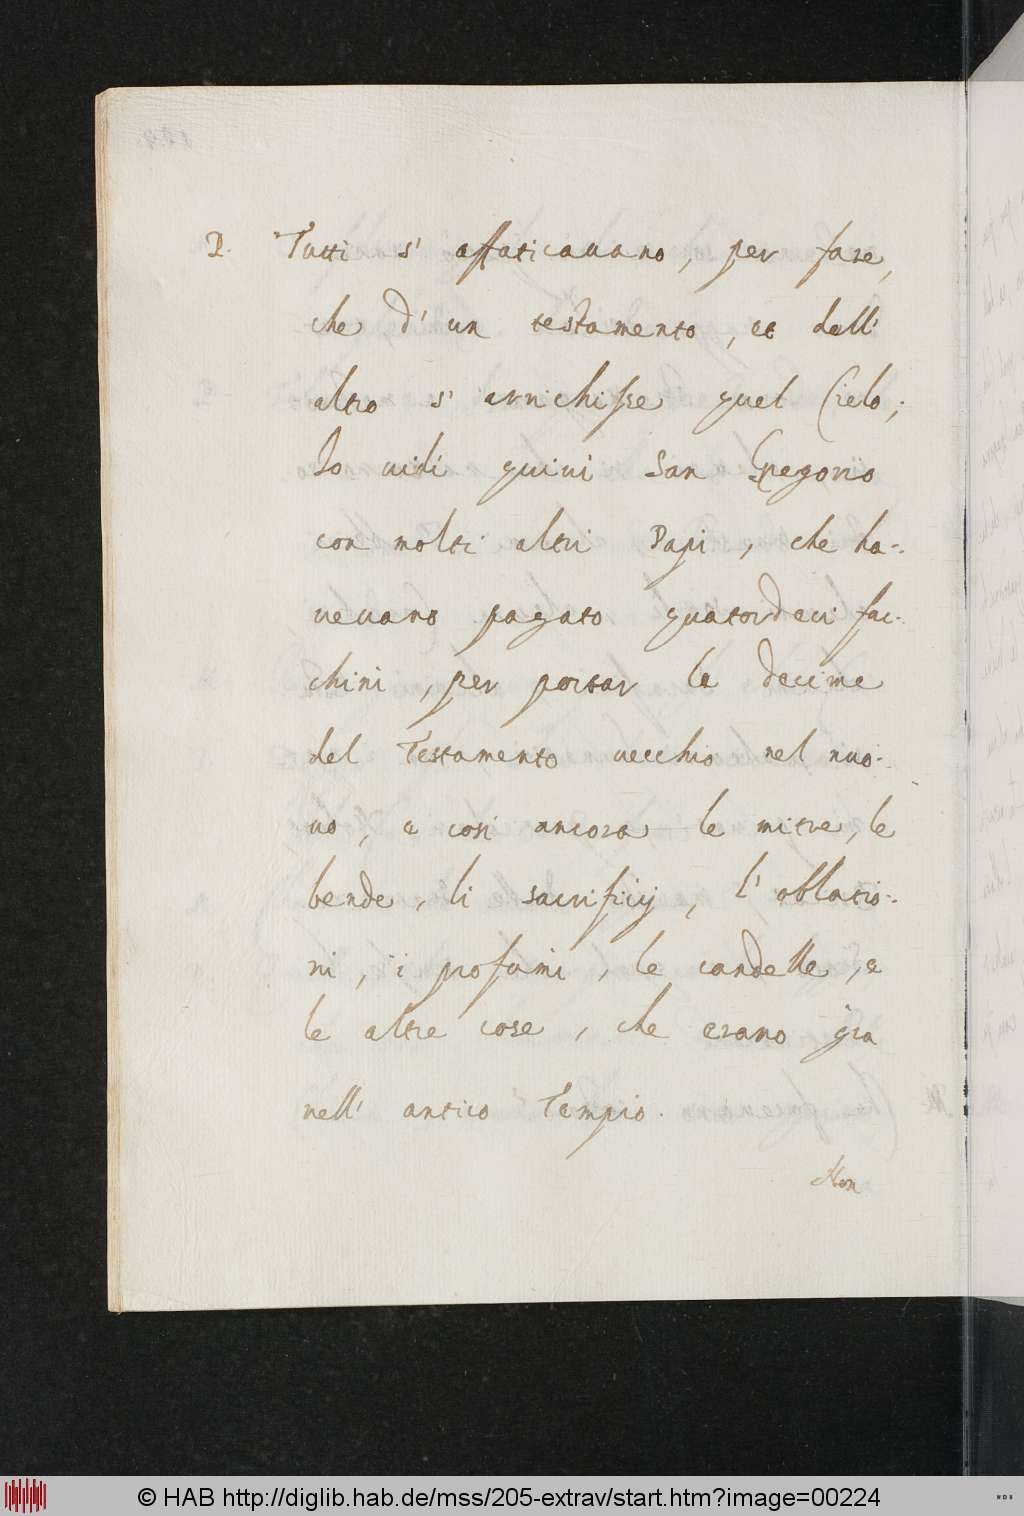 P. Tutti s' affaticauano, per fare,
che d' un testamento, et dall'
altro s' arrichisse quel Cielo;
Io uidi quiui San Gregorio
con molti altri Papi, che ha-
ueuano pagato quatordeci fac-
chini, per portar le decime
del Testamento uecchio nel nuo-
uo, e cosi ancora le mitre, le
bende, li sacrificij, l' oblatio-
ni, i profumi, le candelle, e
le altre cose, che erano gia
nell' antico Tempio.
Non
© HAB http://diglib.hab.de/mss/205-extrav/start.htm?image=00224